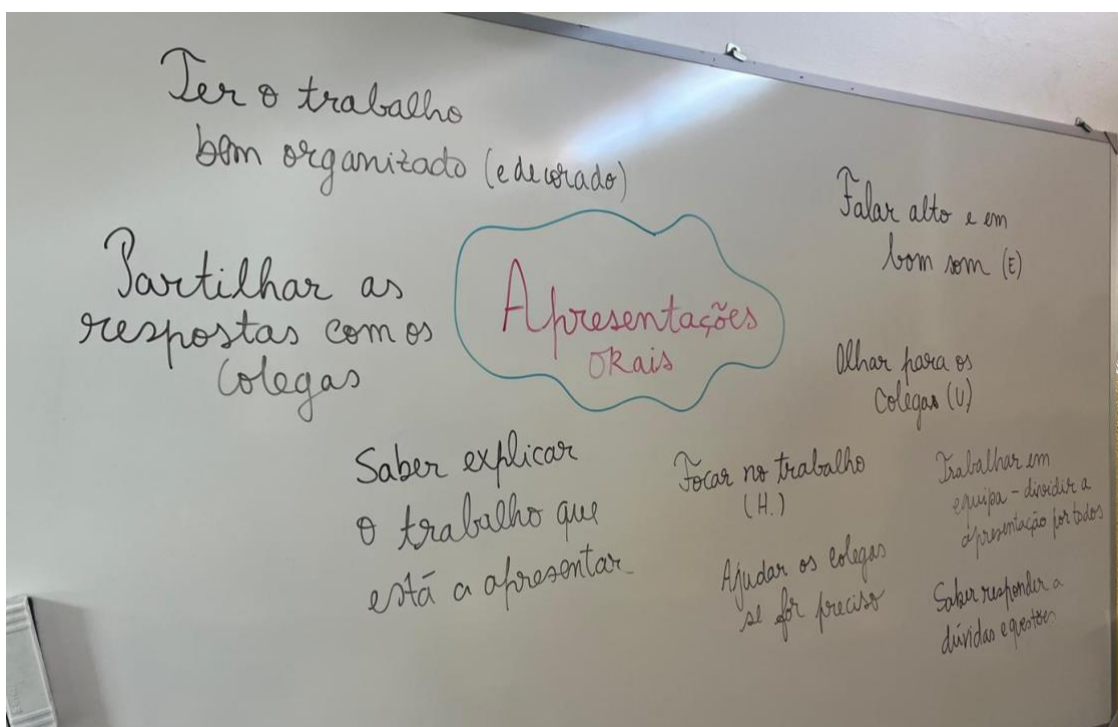 Ter o trabalho
bem organizado (e decorado)
Partilhar as
respostas com os
colegas
Apresentações
orais
Falar alto e em
bom som (E)
Olhar para os
colegas (V)
Saber explicar
o trabalho que
está a apresentar
Focar no trabalho
(H.)
Ajudar os colegas
se for preciso
Trabalhar em
equipa - dividir a
apresentação por todos
Saber responder a
dúvidas e questões